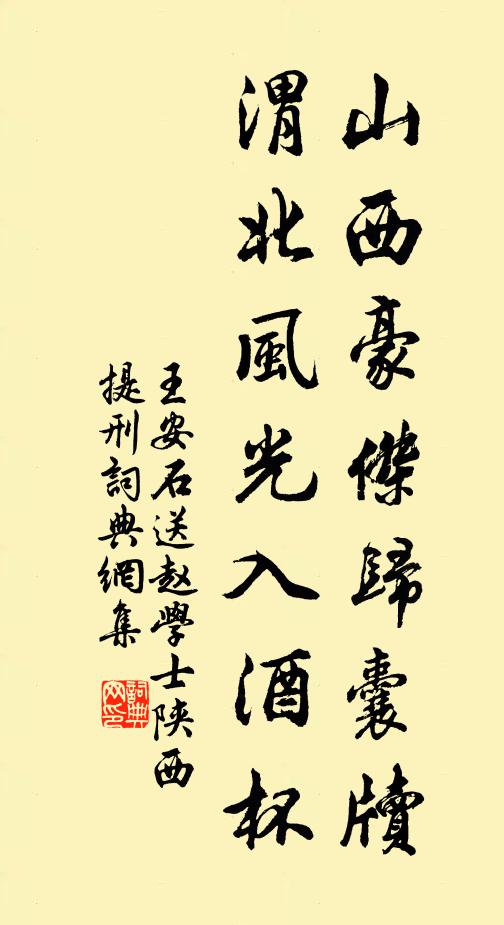 山西豪傑歸囊牘
渭北風光入酒杯
王安石送赵學士陝西
提刑詞典網集
詞典
网印